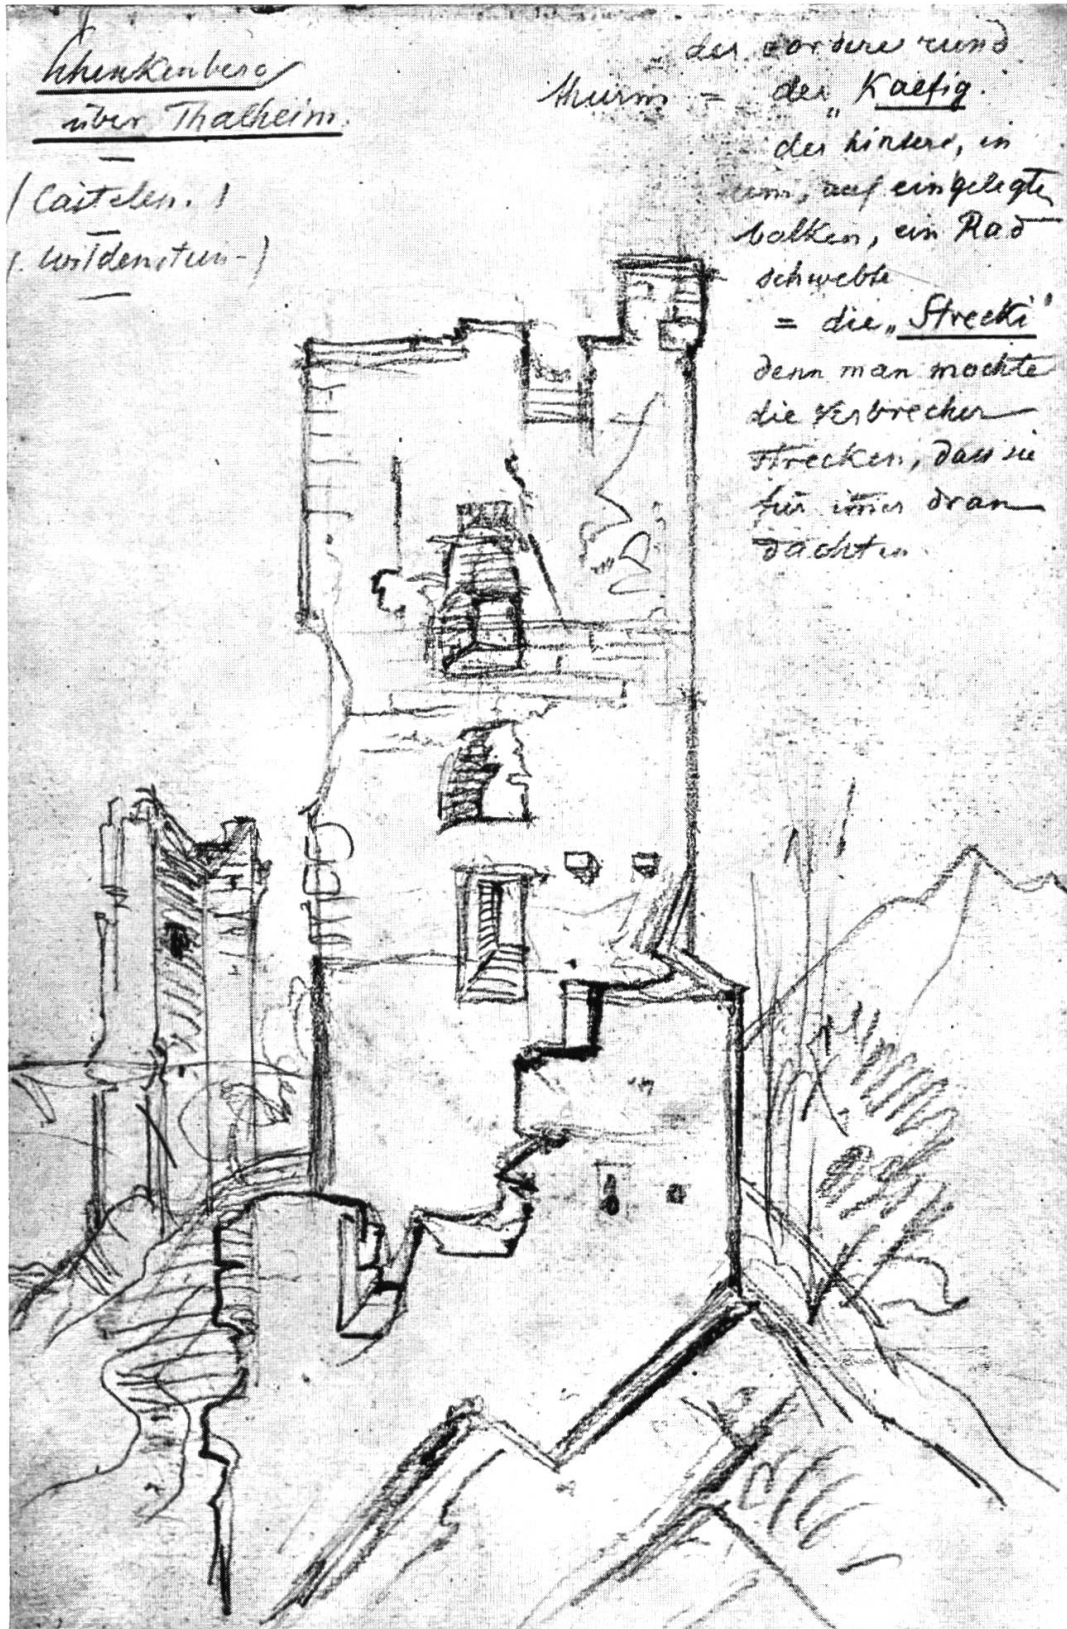 Schenkenberg
über Thalheim.
(Castelen.)
(Wildenstein-)
der vordere rund
thurm = der „Kaefig.
der hintere, in
dem, auf eingelegten
balken, ein Rad
schwebte
= die „Strecki"
denn man mochte
die Verbrecher
strecken, dass sie
für im̅er dran
dachten